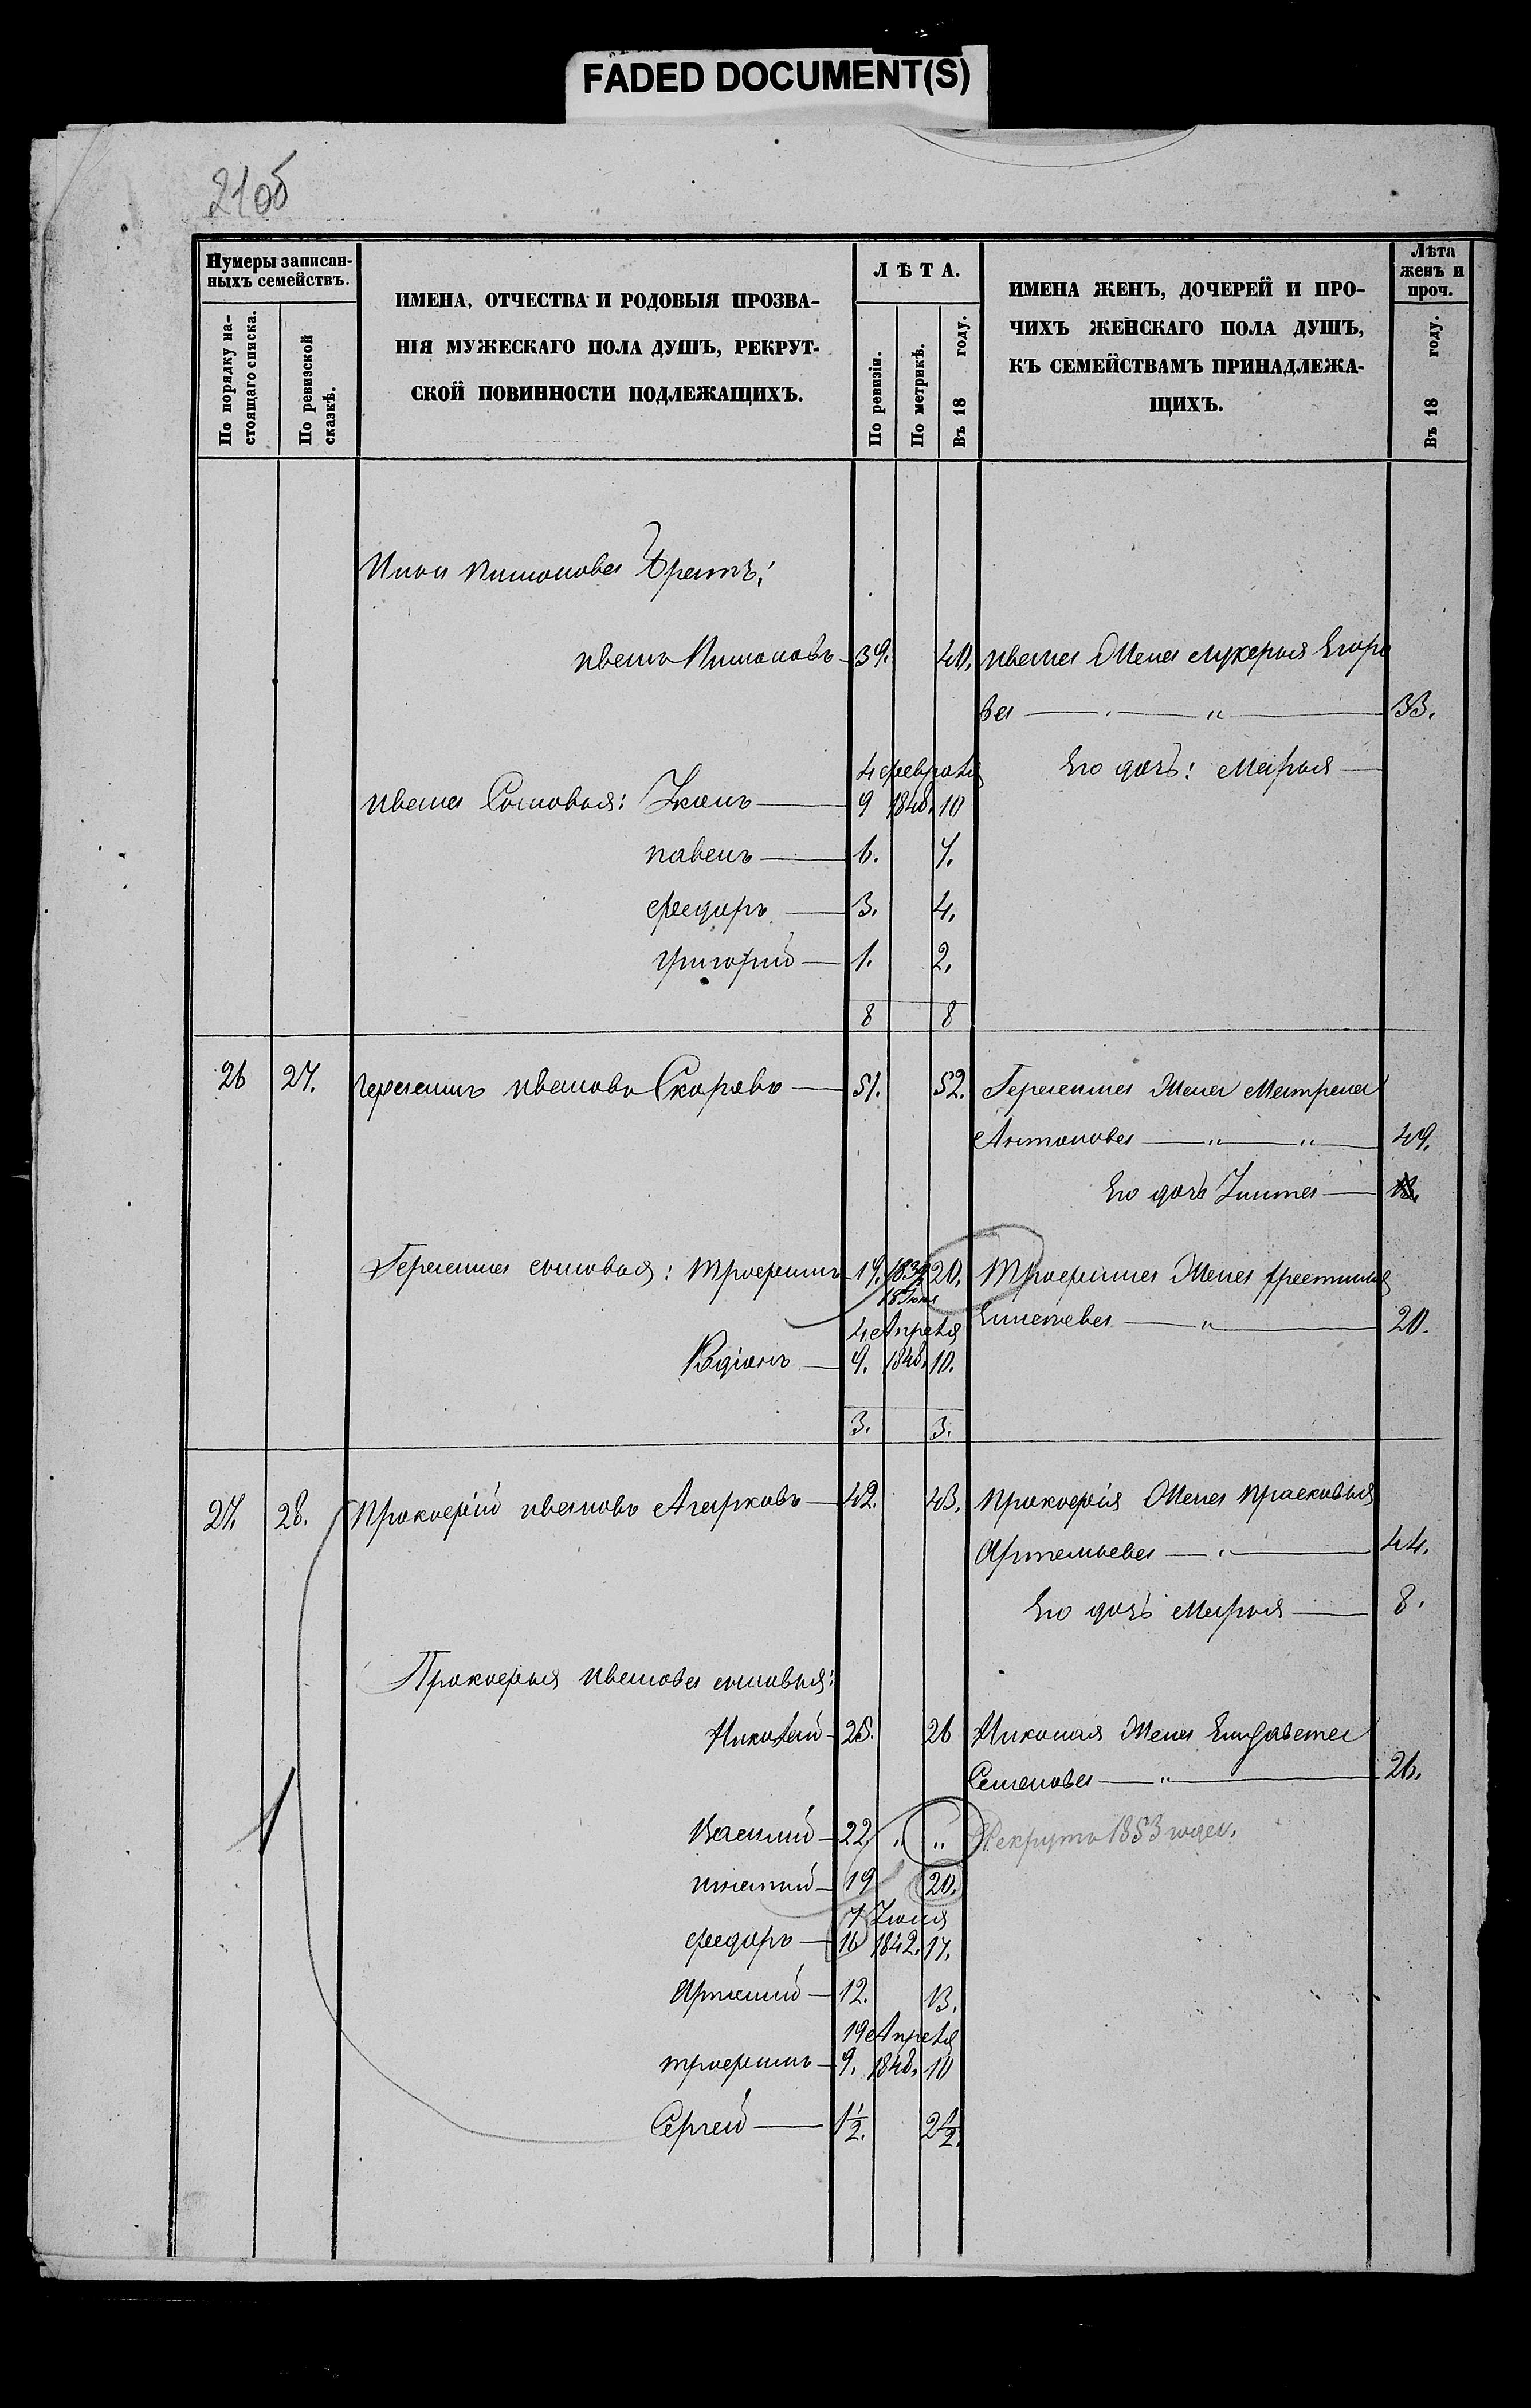 FADED DOCUMENT(S)
21об
Нумеры записан-
ныхъ семействъ.
По порядку на-
стоящаго списка.
По ревизской
сказкѣ.
ИМЕНА, ОТЧЕСТВА И РОДОВЫЯ ПРОЗВА-
НІЯ МУЖЕСКАГО ПОЛА ДУШЪ, РЕКРУТ-
СКОЙ ПОВИННОСТИ ПОДЛЕЖАЩИХЪ.
ЛѢТА.
По ревизіи.
По метрикѣ.
Въ 18 году.
ИМЕНА ЖЕНЪ, ДОЧЕРЕЙ И ПРО-
ЧИХЪ ЖЕНСКАГО ПОЛА ДУШЪ,
КЪ СЕМЕЙСТВАМЪ ПРИНАДЛЕЖА-
ЩИХЪ.
Лѣта
женъ и
проч.
Въ 18 году.
братъ:
иванъ 39. 40. ивана жена лукерья Егоро
ва 〃 33.
4 февраля Его дочь: Марья
ивана Сыновья: 9 1848. 10
павелъ 6. 7.
федоръ 3. 4.
григорій 1. 2.
8 8
26 27. иванова 51. 52. жена Матрена
Антонова 〃 〃 49.
Его дочь
сыновья: трофимъ 19. 1839 20. Трофима жена
18 Июня
4 Апреля 〃 20.
Родіонъ 9. 1848. 10.
3. 3.
27. 28. Прокофій ивановъ Агарковъ 42. 43. Прокофія жена прасковья
Артемьева 〃 44.
Его дочь Марья 8.
Прокофья иванова сыновья:
Николай 25. 26 Николая жена Елизавета
Семенова 〃 26.
Василий 22 〃 〃 Рекрутъ 1853 года.
игнатий 19 20.
7 Июня
федоръ 16 1842. 17.
12. 13.
19 Апреля
трофимъ 9. 1848. 10
Сергей 1½. 2½.